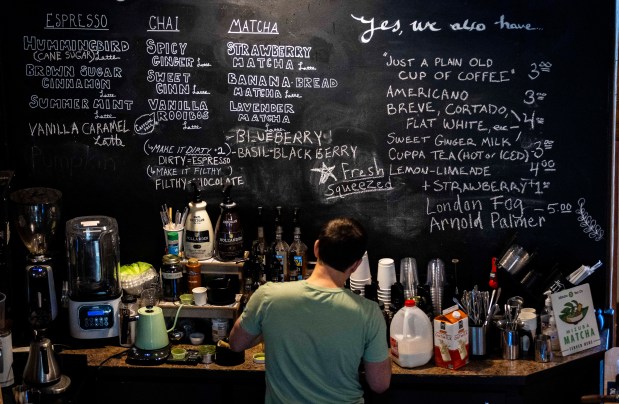 ESPRESSO
HUMMINGBIRD
(CANE SUGAR) Latte
BROWN SUGAR
CINNAMON Latte
SUMMER MINT
Latte
VANILLA CARAMEL
Latte
Pumpkin
CHAI
SPICY
GINGER Latte
SWEET
CINN Latte
VANILLA
ROOIBOS
Latte
(↳MAKE IT DIRTY +2)
DIRTY-ESPRESSO
(↳MAKE IT FILTHY)
FILTHY-CHOCOLATE
MATCHA
STRAWBERRY
MATCHA Latte
BANANA-BREAD
MATCHA Latte
LAVENDER
MATCHA
Latte
-BLUEBERRY
-BASIL-BLACKBERRY
Fresh
Squeezed
Yes, we also have...
"JUST A PLAIN OLD
CUP OF COFFEE" 3.00
AMERICANO 3.00
BREVE, CORTADO,
FLAT WHITE, etc 4.00
SWEET GINGER MILK
CUPPA TEA (HOT or ICED) 3.00
LEMON-LIMEADE 4.00
+ STRAWBERRY +1.00
London Fog
Arnold Palmer 5.00
MIZUBA
MATCHA